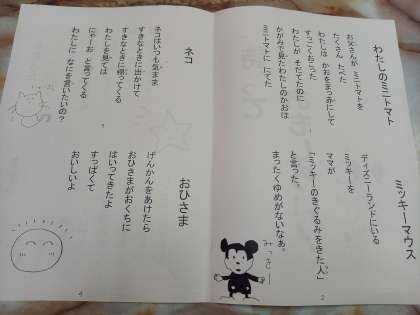 ミッキーマウス
ディズニーランドにいる
ミッキーを
ママが
「ミッキーのきぐるみをきた人」
と言った。
まったくゆめがないなあ。
みっきー
2
わたしのミニトマト
お父さんが ミニトマトを
たくさん たべた
わたしは かおをまっ赤にして
すっごくおこった
わたしが そだてたのに
かがみで見たわたしのかおは
ミニトマトに にてた
ネコ
ネコはいつも気まま
すきなときに出かけて
すきなときに帰ってくる
わたしを見ては
にゃーお と言ってくる
わたしに なにを言いたいの?
おひさま
げんかんをあけたら
おひさまがおくちに
はいってきたよ
すっぱくて
おいしいよ
4